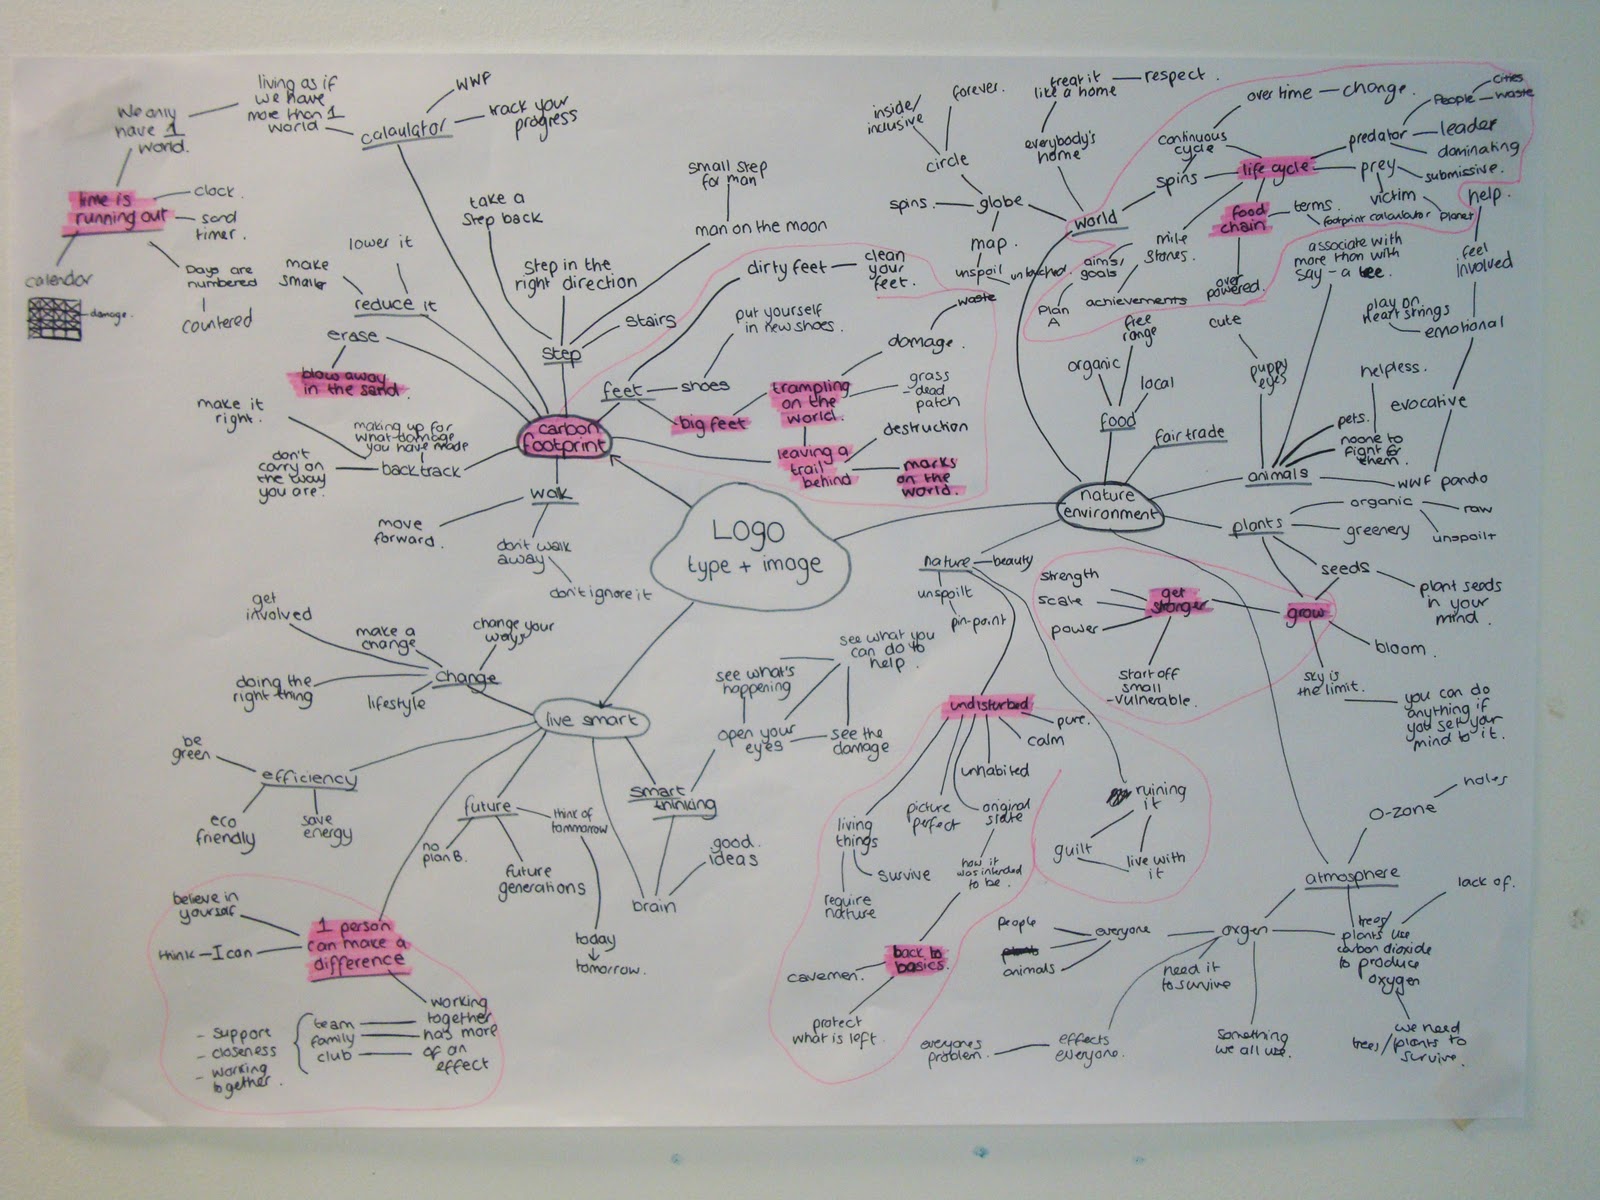 LOGO
type + image
carbon
footprint
calaulator
WWF
track your
progress
living as if
we have
more than 1
world
We only
have 1
world.
time is
running out
clock.
sand
timer.
Days are
numbered
countered
calendar
damage.
reduce it
make
smaller
lower it
erase
blow away
in the sand.
back track
making up for
what damage
you have made
make it
right.
don't
carry on
the way
you are.
walk
move
forward.
don't walk
away
don't ignore it
step
take a
step back
step in the
right direction
small step
for man
man on the moon
stairs
feet
dirty feet
clean
your
feet.
shoes
put yourself
in new shoes.
big feet
trampling
on the
world.
damage.
waste
grass
dead
patch
leaving a
trail
behind
destruction
marks
on the
world.
nature
environment
world
globe
circle
inside/
inclusive
forever.
spins.
map.
unspoil
untouched.
everybody's
home
treat it
like a home
respect.
spins
continuous
cycle
life cycle
over time
change.
predator
People
cities
waste
leader
dominating
prey
submissive.
victim
planet
help.
food
chain
terms.
footprint calaulator
over
powered.
mile
stones.
aims/
goals
Plan
A
achievements
food
organic
free
range
local
fair trade
animals
cute
puppy
eyes
associate with
more than with
say - a tree.
pets.
helpless.
noone to
fight for
them.
WWF pando
evocative
emotional
play on
heart strings
feel
involved
plants
organic
raw
unspoilt
greenery
seeds
plant seeds
in your
mind.
grow
bloom.
sky is
the limit.
you can do
anything if
you set your
mind to it.
get
stronger
strength
scale
power
start off
small
-vulnerable.
nature
beauty
unspoilt
pin-point
undisturbed
pure.
calm
unhabited
original
state
how it
was intended
to be.
picture
perfect
living
things
survive
require
nature
back to
basics.
cavemen.
protect
what is left.
ruining
it
guilt
live with
it
atmosphere
O-zone
holes
oxgen
everyone
people
animals
need it
to survive
effects
everyone.
everyones
problem.
something
we all use.
trees/
plants use
carbon dioxide
to produce
oxygen
lack of.
we need
trees/plants to
survive.
live smart
change
get
involved
make a
change
change your
ways
doing the
right thing
lifestyle
efficiency
be
green
eco
friendly
save
energy
future
no
plan B.
future
generations
think of
tommorow
today
tomorrow.
smart
thinking
open your
eyes
see what's
happening
see what you
can do to
help.
see the
damage
brain
good
ideas
1 person
can make a
difference
believe in
yourself
think - I can
working
together
has more
of an
effect
team
family
club
- support
- closeness
- working
together.